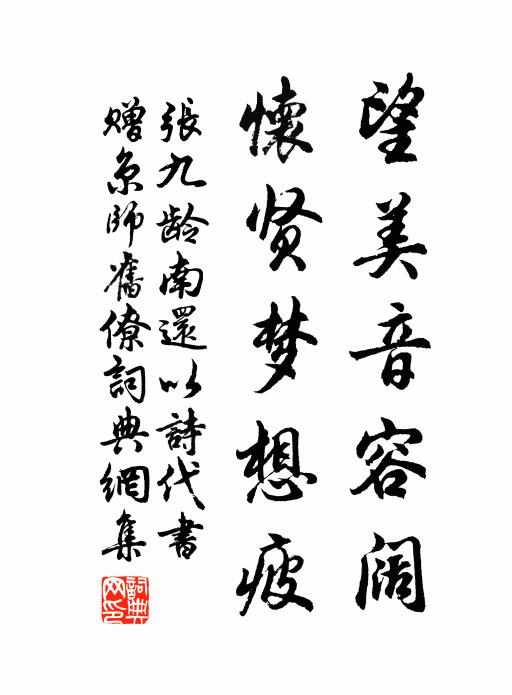 望美音容阔
懷贤梦想疲
張九龄南還以詩代書
赠京師舊僚詞典網集
詞典
网印